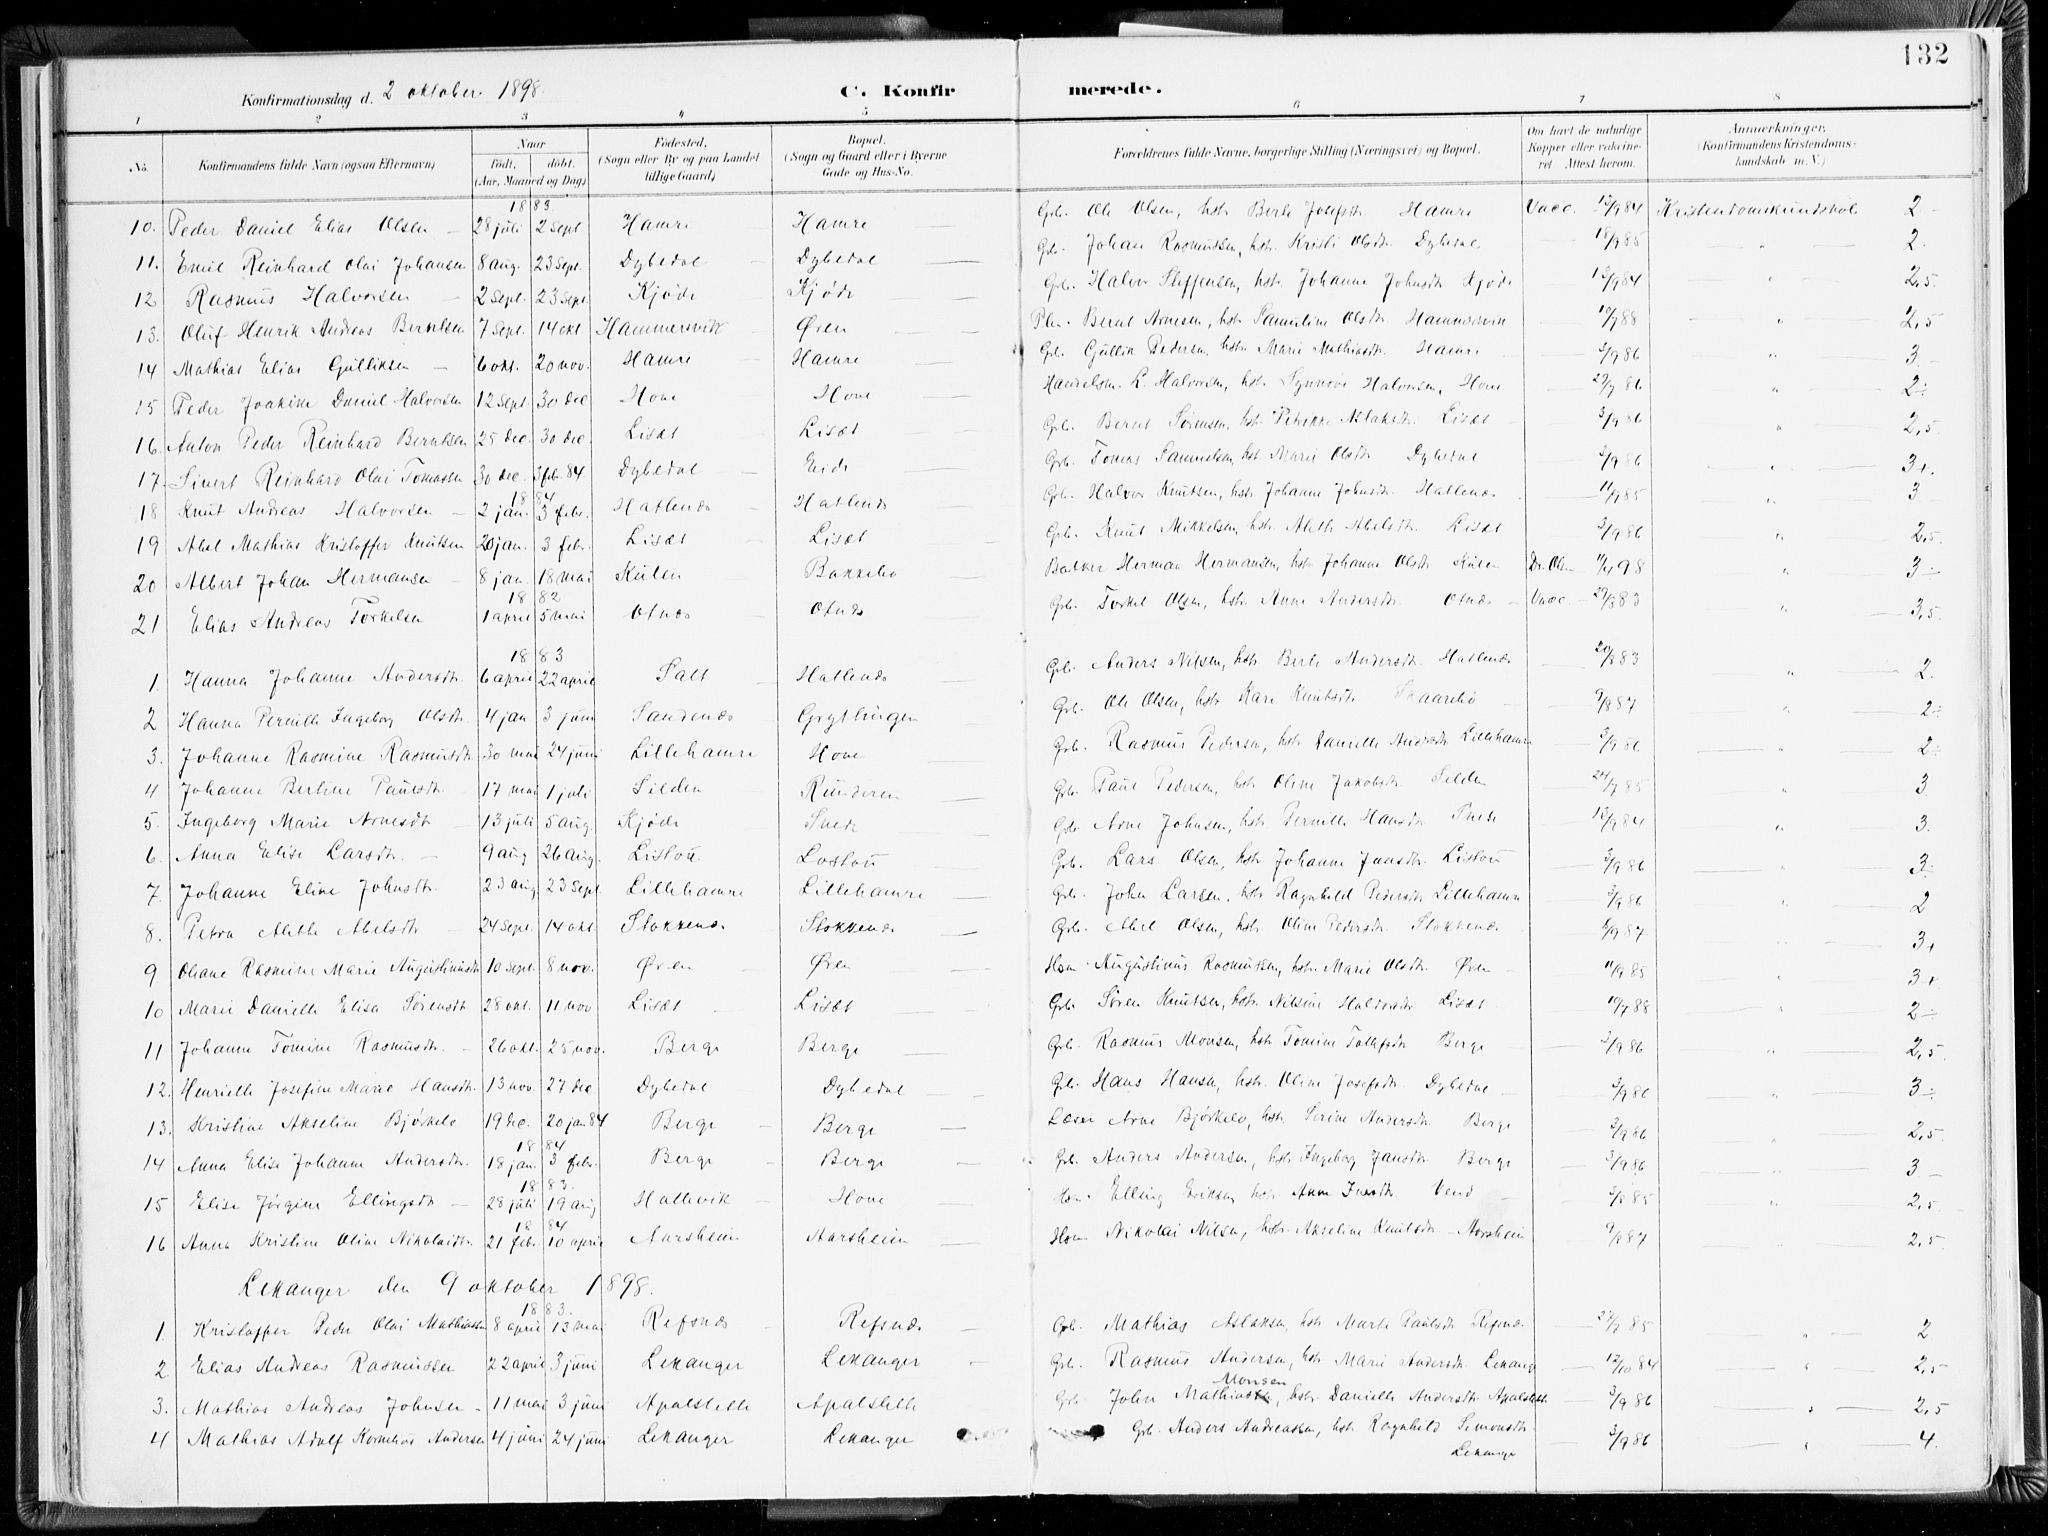 132
Konfirmationsdag d. 2 oktober 1898. C. Konfirmerede.
1 2 3 4 5 6 7 8
No. Konfirmandens fulde Navn (ogsaa Efternavn) Naar født, døbt. (Aar, Maaned og Dag) Fødested. (Sogn eller By og paa Landet tillige Gaard) Bopæl. (Sogn og Gaard eller i Byerne Gade og Hus-No. Forældrenes fulde Navne, borgerlige Stilling (Næringsvei) og Bopæl. Om havt de naturlige Kopper eller vakcineret Attest herom. Anmærkninger. (Konfirmandens Kristendomskundskab m. V.)
1883
10. Peder Daniel Elias Olsen 28 juli 2 sept Hamre Hamre Grb. Ole Olsen, hstr. Berte Josefsdtr Hamre Vacc. 13/9 84 Kristendomskundskab 2
11. Emil Reinhard Olai Johansen 8 aug. 23 sept. Dybedal Dybedal Grb. Johan Rasmussen, hstr. Kristi Olsdtr. Dybedal 18/9 85 " 2
12 Rasmus Halvorsen 2 sept. 23 sept. Kjøde Kjøde Grb. Halvor Steffensen, hstr. Johanne Johnsdtr Kjøde 13/9 84 " 2,5
13. Oluf Henrik Andreas Berntsen 7 sept. 14 okt Hammersvik Øren Bernt Arnesen, hstr. Samuline Olsdtr. Hammersvik 19/7 88 " 2,5
14 Mathias Elias Gulliksen 6 okt. 20 nov. Hamre Hamre Grb. Gullik Pedersen, hstr. Marie Mathiasdtr. Hamre 3/9 86 " 3
15 Peder Joakim Daniel Halvorsen 12 sept. 30 dec Hove Hove Handelsm. L. Halvorsen, hstr. Synnøve Halvorsen, Hove 29/7 86 " 2÷
16. Anton Peder Reinhard Berntsen 25 dec. 30 dec. Lisæt Lisæt Grb. Bernt Sørensen, hstr. Petrikke Aslaksdtr. Lisæt 3/9 86 " 2,5
17. Sivert Reinhard Olai Tomassen 30 dec. 3 feb. 84 Dybedal Eide Grb. Tomas Samuelsen, hstr. Marie Olsdtr Dybedal 3/9 86 " 3+
1884
18 Knut Andreas Halvorsen 2 jan. 3 febr. Hatlenæs Hatlenæs Grb. Halvor Knutsen, hstr. Johanne Johnsdtr. Hatlenæs 11/9 85 " 3
19 Abel Mathias Kristoffer Knutsen 20 jan. 3 febr. Lisæt Lisæt Grb. Knut Mikkelsen, hstr. Alette Abelsdtr. Lisæt 3/9 86 " 2,5
20 Albert Johan Hermansen 8 jan. 18 mai Kulen Bakkebø Herman Hermansen, hstr. Johanne Olsdtr Kulen Dr. Olsen 98 " 3÷
1882
21 Elias Andreas Torkelsen 1 april 5 mai Otnæs Otnæs Grb. Torkel Olsen, hstr. Anne Andersdtr. Otnæs Vacc. 29/8 83 " 3,5
1883
1. Hanna Johanne Andersdtr. 6 april 22 april Salt Hatlenæs Grb. Anders Nilsen, hstr. Berte Andersdtr. Hatlenæs 20/8 83 " 2.
2 Hanna Pernille Ingeborg Olsdtr. 4 jan 3 juni Sandenæs Grytlingen Grb. Ole Olsen, hstr. Kari Knutsdtr. Skaarebø 9/8 87 " 2÷
3. Johanne Rasmine Rasmusdtr. 30 mai 24 juni Lillehamre Hove Grb. Rasmus Pedersen, hstr. Danielle Andersdtr Lillehamre 3/9 86 " 2÷
4 Johanne Bertine Paulsdtr. 17 mai 1 juli Silden Runderen Grb. Paul Pedersen, hstr. Oline Jakobsdtr Silden 24/7 85 " 3
5. Ingeborg Marie Arnesdtr 13 juli 5 aug. Kjøde Grb. Arne Johnsen, hstr. Pernille Hansdtr. 13/9 84 " 3.
6. Anna Elise Larsdtr. 9 aug 26 aug. Listou Lostou Grb. Lars Olsen, hstr. Johanne Jansdtr. Listou 3/9 86 " 3÷
7. Johanne Eline Johnsdtr. 23 aug 23 sept. Lillehamre Lillehamre Grb. John Larsen, hstr. Ragnhild Pedersdtr Lillehamre 3/9 86 " 2
8. Petra Alette Abelsdtr 24 sept. 14 okt. Stokkenæs Stokkenæs Grb. Abel Olsen, hstr. Oline Pedersdtr. Stokkenæs 87 " 3+
9. Oliane Rasmine Marie Augustinusdtr 10 sept. 8 nov. Øren Øren Hsm. Augustinus Rasmussen, hstr. Marie Olsdtr. Øren 11/9 85 " 3+
10 Marie Danielle Elisa Sørensdtr 28 okt. 11 nov Lisæt Lisæt Grb. Søren Knutsen, hstr. Nilsine Haldorsdtr Lisæt 19/7 88 " 2÷
11 Johanne Tomine Rasmusdtr. 26 okt. 25 nov. Berge Berge Grb. Rasmus Monsen, hstr Tomine Tollefsdtr Berge 3/9 86 " 2,5
12. Henriette Josefine Marie Hansdtr. 13 nov. 27 dec Dybedal Dybedal Grb. Hans Hansen, hstr. Oline Josefsdtr. Dybedal 3/9 86 " 3÷
13. Kristine Akseline Bjørkelo 19 dec. 20 jan 84 Berge Berge Læser Arne Bjørkelo, hstr. Serine Andersdtr Berge 3/9 86 " 2,5
1884
14 Anna Elise Johanne Andersdtr. 18 jan. 3 febr. Berge Berge Grb. Anders Andersen, hstr Ingeborg Jansdtr. Berge 3/9 86 " 3.
1883.
15 Elise Jørgine Ellingsdtr 28 juli 19 aug Hallevik Hove Hsm. Elling Eriksen, hstr. Anne Iversdtr. Vend 85 " 2,5
1884
16 Anna Kristine Oline Nikolaidtr. 21 feb. 10 april Aarsheim Aarsheim Hsm Nikolai Nilsen, hstr. Akseline Knutsdtr. Aarsheim 9/8 87 " 2,5
Lekanger den 9 oktober 1898.
1883.
1. Kristoffer Peder Olai Mathiassen 8 april 13 mai Refsnæs Refsnæs Grb. Mathias Aslaksen, hstr. Marte Paulsdtr Refsnæs 85 " 2
2. Elias Andreas Rasmussen 22 april 3 juni Lekanger Lekanger Grb. Rasmus Andersen, hstr. Marie Andersdtr. Lekange 12/10 84 " 2,5
Monsen
3. Mathias Andreas Johnsen 11 mai 3 juni Apalstette Apalstette Grb. John Mathias, hstr. Danielle Andersdtr Apalstette 3/9 86 " 2,5
4 Mathias Adolf Kornelius Andersen 4 juni 24 juni Lekanger Lekanger Grb. Anders Andreassen, hstr. Ragnhild Simonsdtr. 3/9 86 " 4.
Lekange